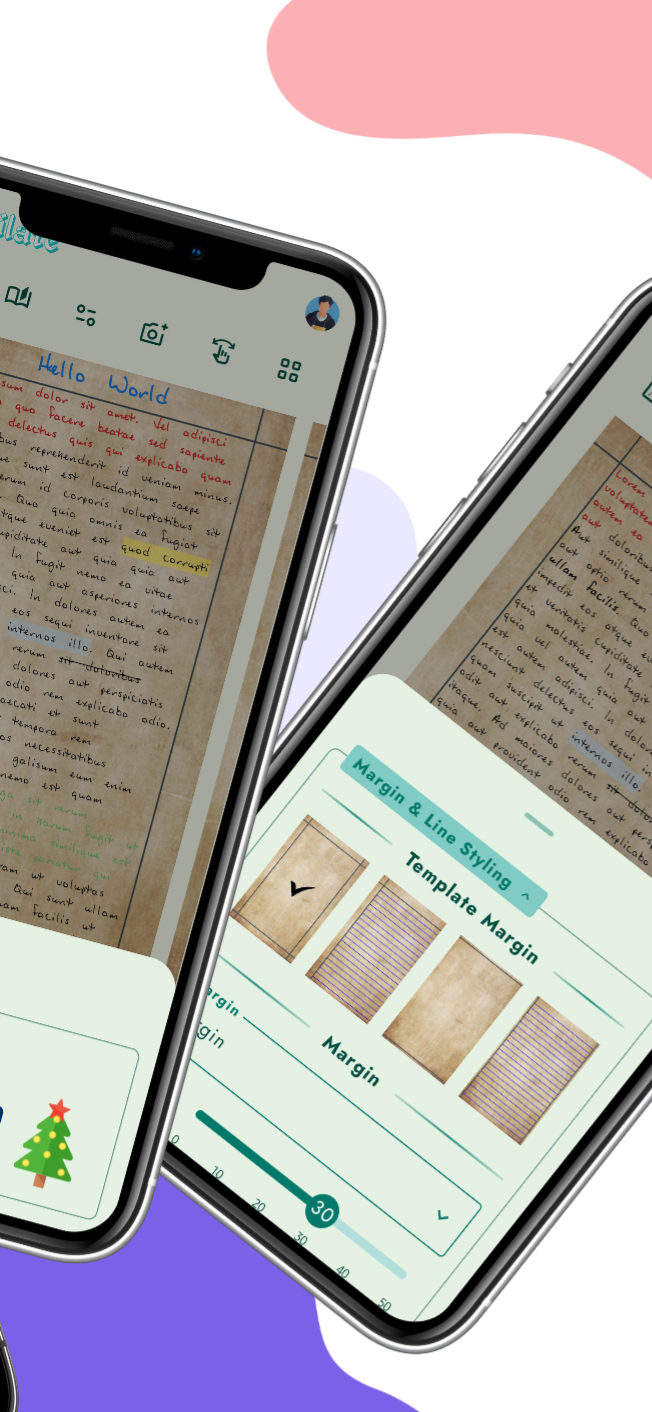 Hello World
sum dolor sit amet. Vel adipisci
quo facere beatae sed sapiente
delectus quis qui explicabo quam
bus reprehenderit id veniam minus.
e sunt est laudantium saepe
erum id corporis voluptatibus sit
Quo quia omnis ea fugiat
tque eveniet est quod corrupti
piditate aut quia quia aut
In fugit nemo ea vitae
quia aut asperiores internos
ci. In dolores autem ea
eos sequi inventore sit
internos illo. Qui autem
rerum sit doloribus
dolores aut perspiciatis
odio rem explicabo odio.
aecati et sunt
tempora rem
os necessitatibus
galisum eum enim
nemo est quam
ga sit rerum
in harum fugit ut
minima similique est
iste pariatur qui
ram ut voluptas
Qui sunt ullam
am facilis ut
Lorem
voluptatem
autem ea
aut doloribus
Aut similique
aut optio rerum
ullam facilis. Quo
impedit eos atque eve
et veritatis cupiditate
quia molestiae. In fugit
quia vel autem quia aut
est autem adipisci. In dolore
nesciunt delectus eos sequi in
quam suscipit ut internos illo.
odit aut explicabo rerum sit dolo
itaque. Ad maiores dolores aut persp
quia aut provident odio rem explicabo
Margin & Line Styling
Template Margin
Margin
argin
rgin
30
0 10 20 30 40 50